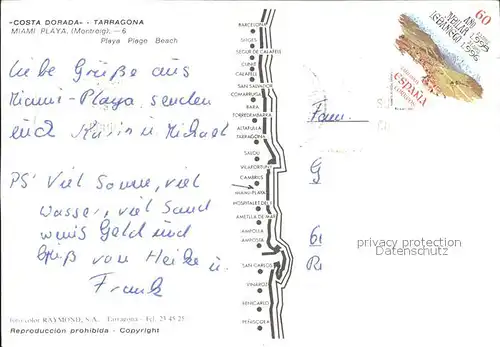 "COSTA DORADA" - TARRAGONA
MIAMI PLAYA. (Montroig). — 6
Playa Plage Beach
Liebe Grüße aus
Miami-Playa senden
euch Marin u. Michael
PS: Viel Sonne, viel
wasser, viel Sand
wenis Geld und
Grüß von Heike u.
Frank
BARCELONA
SITGES
SEGUR DE CALAFELL
CUNIT
CALAFELL
SAN SALVADOR
COMARRUGA
BARA
TORREDEMBARRA
ALTAFULLA
TARRAGONA
SALOU
VILAFORTUNY
CAMBRILS
MIAMI-PLAYA
HOSPITALET DE I.
AMETLLA DE MAR
AMPOLLA
AMPOSTA
SAN CARLOS
VINAROZ
BENICARLO
PEÑISCOLA
60
AÑO
JUBILAR
LEBANIEGO
1995
1996
ESPAÑA
CORREOS
Fam.
G
6
R
privacy protection
Datenschutz
RAYMOND, S.A. Tarragona - Tel. 23 45 25
Reproducción prohibida - Copyright